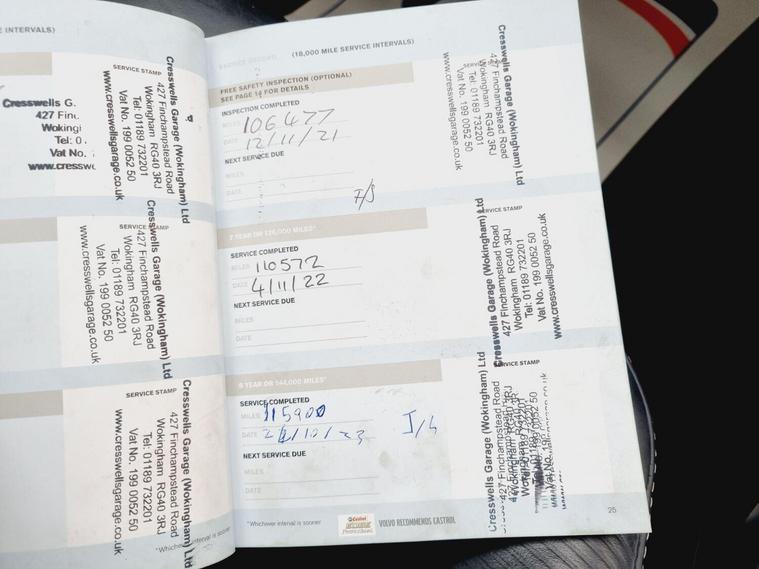 E INTERVALS)
SERVICE STAMP
Cresswells Garage (Wokingham) Ltd
427 Finchampstead Road
Wokingham RG40 3RJ
Tel: 01189 732201
Vat No. 199 0052 50
www.cresswellsgarage.co.uk
Cresswells G.
427 Finc
Wokingi
Tel: 0
Vat No.
www.cresswe
SERVICE STAMP
Cresswells Garage (Wokingham) Ltd
427 Finchampstead Road
Wokingham RG40 3RJ
Tel: 01189 732201
Vat No. 199 0052 50
www.cresswellsgarage.co.uk
SERVICE STAMP
Cresswells Garage (Wokingham) Ltd
427 Finchampstead Road
Wokingham RG40 3RJ
Tel: 01189 732201
Vat No. 199 0052 50
www.cresswellsgarage.co.uk
*Whichever interval is sooner
SERVICE RECORD (18,000 MILE SERVICE INTERVALS)
FREE SAFETY INSPECTION (OPTIONAL)
SEE PAGE 14 FOR DETAILS
INSPECTION COMPLETED
MILES 106477
DATE 12/11/21
NEXT SERVICE DUE
MILES
DATE
Cresswells Garage (Wokingham) Ltd
427 Finchampstead Road
Wokingham RG40 3RJ
Tel: 01189 732201
Vat No. 199 0052 50
www.cresswellsgarage.co.uk
7 YEAR OR 126,000 MILES*
SERVICE COMPLETED
MILES 110572
DATE 4/11/22
NEXT SERVICE DUE
MILES
DATE
SERVICE STAMP
Cresswells Garage (Wokingham) Ltd
427 Finchampstead Road
Wokingham RG40 3RJ
Tel: 01189 732201
Vat No. 199 0052 50
www.cresswellsgarage.co.uk
8 YEAR OR 144,000 MILES*
SERVICE COMPLETED
MILES 115900
DATE /10/23
NEXT SERVICE DUE
MILES
DATE
SERVICE STAMP
Cresswells Garage (Wokingham) Ltd
427 Finchampstead Road
Wokingham RG40 3RJ
*Whichever interval is sooner
Castrol
VOLVO RECOMMENDS CASTROL
25